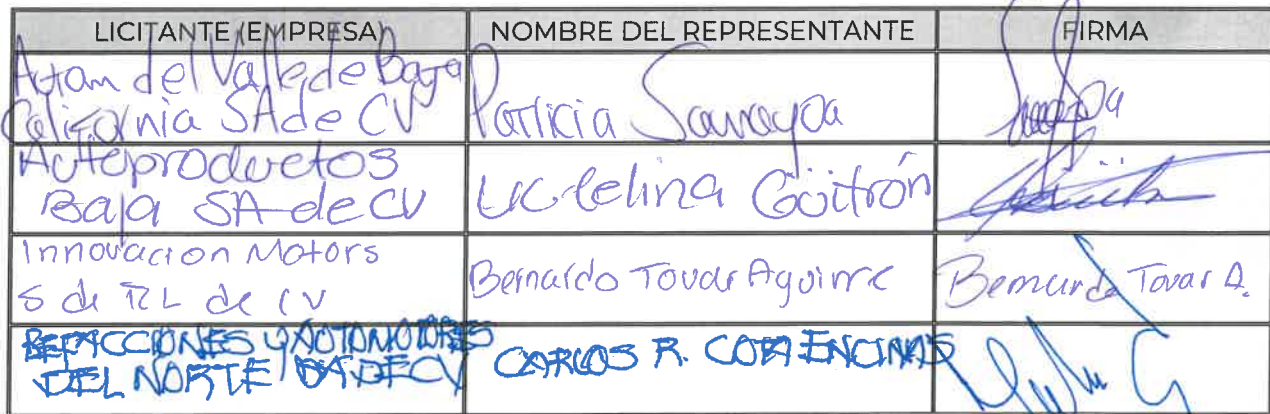 LICITANTE (EMPRESA) NOMBRE DEL REPRESENTANTE FIRMA
Autam del Valle de Baja
California SA de CV Patricia Sawayoa
Autoproductos
Baja SA de CV Lic Celina Güitrón
Innovacion Motors
S de RL de CV Bernardo Tovar Aguirre Bernardo Tovar A.
REFACCIONES Y AUTOMOTORES
DEL NORTE SA DE CV CARLOS R. COTA ENCINAS